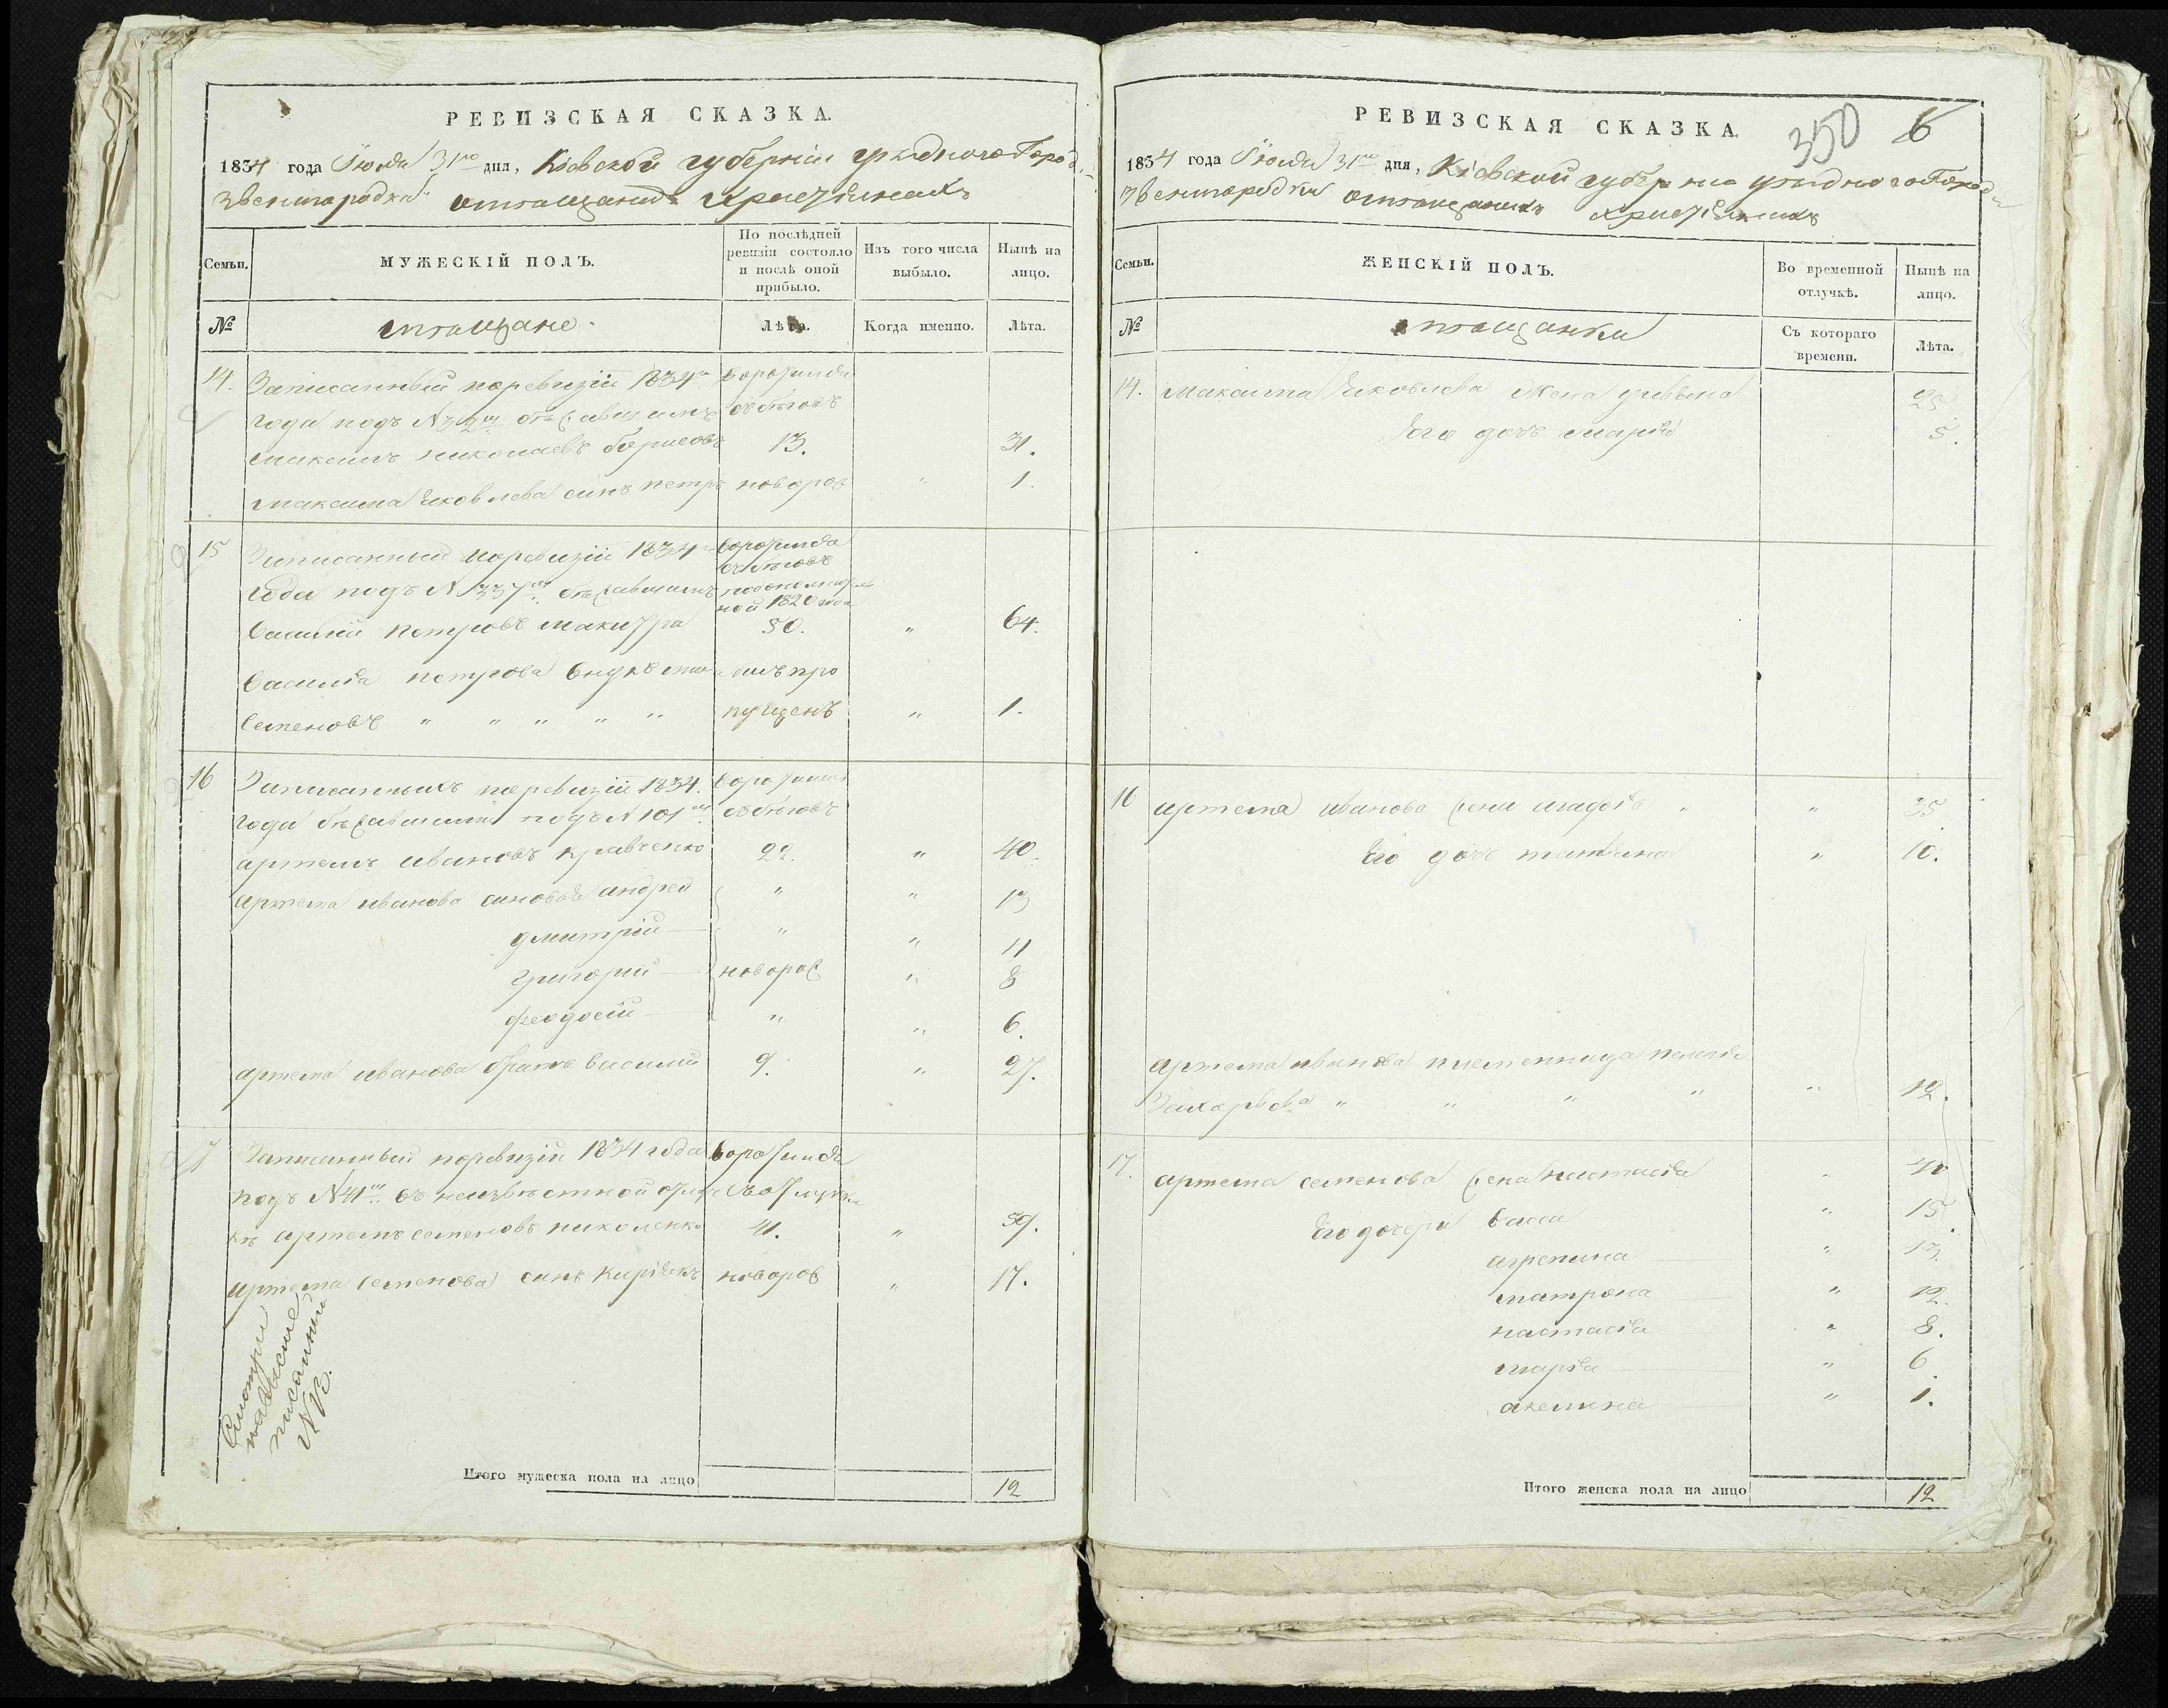 РЕВИЗСКАЯ СКАЗКА.
1834 года Іюля 31го дня, Кіевской губерніи уѣзднаго Город.
Звенигородки омѣщанахъ Христіянахъ
Семьи.
МУЖЕСКІЙ ПОЛЪ.
По послѣдней ревизіи состояло и послѣ оной прибыло.
Изъ того числа выбыло.
Нынѣ на лицо.
№
мѣщане.
Лѣта.
Когда именно.
Лѣта.
14. Записанный поревизіи 1834го
года подъ №
Максимъ николаевъ борисовъ 13. 31.
Максима Яковлева синъ петръ новорож „ 1.
15 Записанный поревизіи 1834го
года подъ № 337мъ
ной 1820 года
Василій петровъ макитра 50. „ 64.
Василія петрова внукъ
Семеновъ „ „ „ „ „ пущенъ „ 1.
16 Записанныхъ поревизіи 1834.
года подъ № 101мъ
артемъ ивановъ кравченко 22. „ 40.
артема иванова синовья андрей „ „ 13
дмитрій „ „ 11
григорій новорож „ 8
феодосій „ „ 6.
артема иванова братъ василій 9. „ 27.
17 Записанный поревизіи 1834 года
подъ № 41мъ въ неизвѣстной
артемъ семеновъ николенко 41. „ 59.
артема семенова синъ Киріякъ новорож „ 17.
Смотри
писанный
№
Итого мужеска пола на лицо 12
350 6
РЕВИЗСКАЯ СКАЗКА.
1834 года Іюля 31го дня, Кіевской губерніи уѣзднаго Город
Звенигородки омѣщанахъ Христіянахъ
Семьи.
ЖЕНСКІЙ ПОЛЪ.
Во временной отлучкѣ.
Нынѣ на лицо.
№
мѣщанки
Съ котораго времени.
Лѣта.
14. Максима Яковлева жена ульяна 25
Его дочь марія 5.
16 артема иванова жена агафія „ „ 35
Его дочь татіяна „ 10.
артема иванова племенница пелагія
Захарьева „ „ „ „ „ 12.
17. артема семенова жена настасія „ 40
Его дочери васса „ 15.
агрепина „ 13.
матрона „ 12.
настасія „ 8.
марія „ 6
акелина „ 1.
Итого женска пола на лицо 12